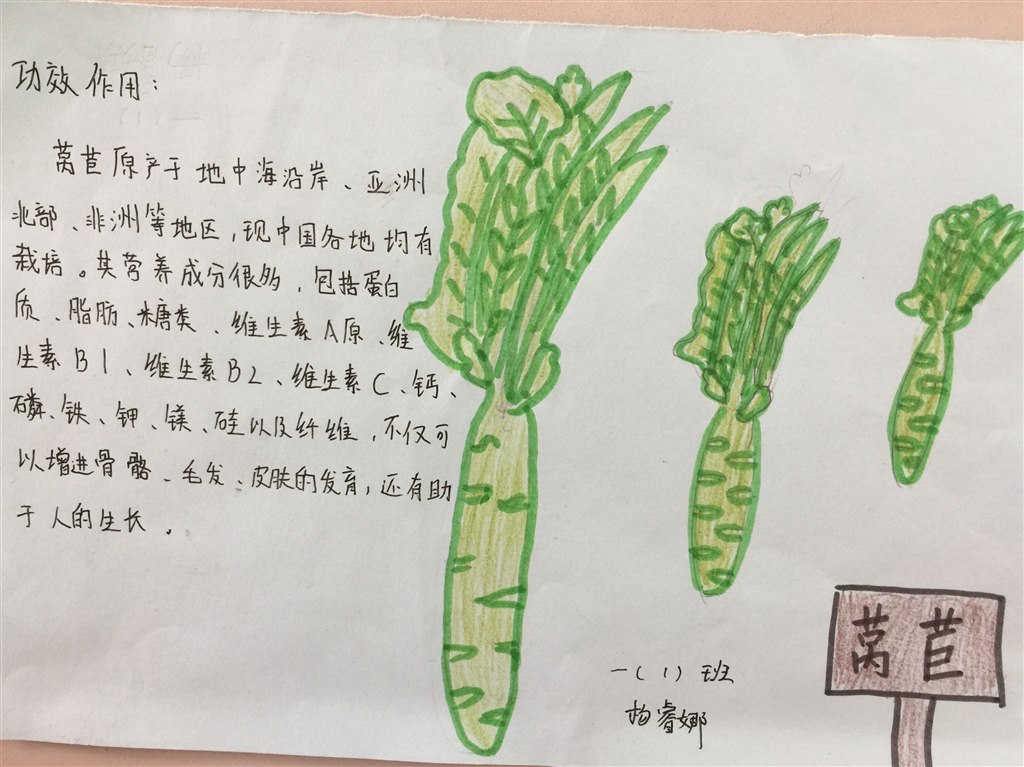 功效作用：
莴苣原产于地中海沿岸、亚洲
北部、非洲等地区，现中国各地均有
栽培。其营养成分很多，包括蛋白
质、脂肪、糖类、维生素A原、维
生素B1、维生素B2、维生素C、钙、
磷、铁、钾、镁、硅以及纤维，不仅可
以增进骨骼、毛发、皮肤的发育，还有助
于人的生长．
一（1）班
杨睿娜
莴苣